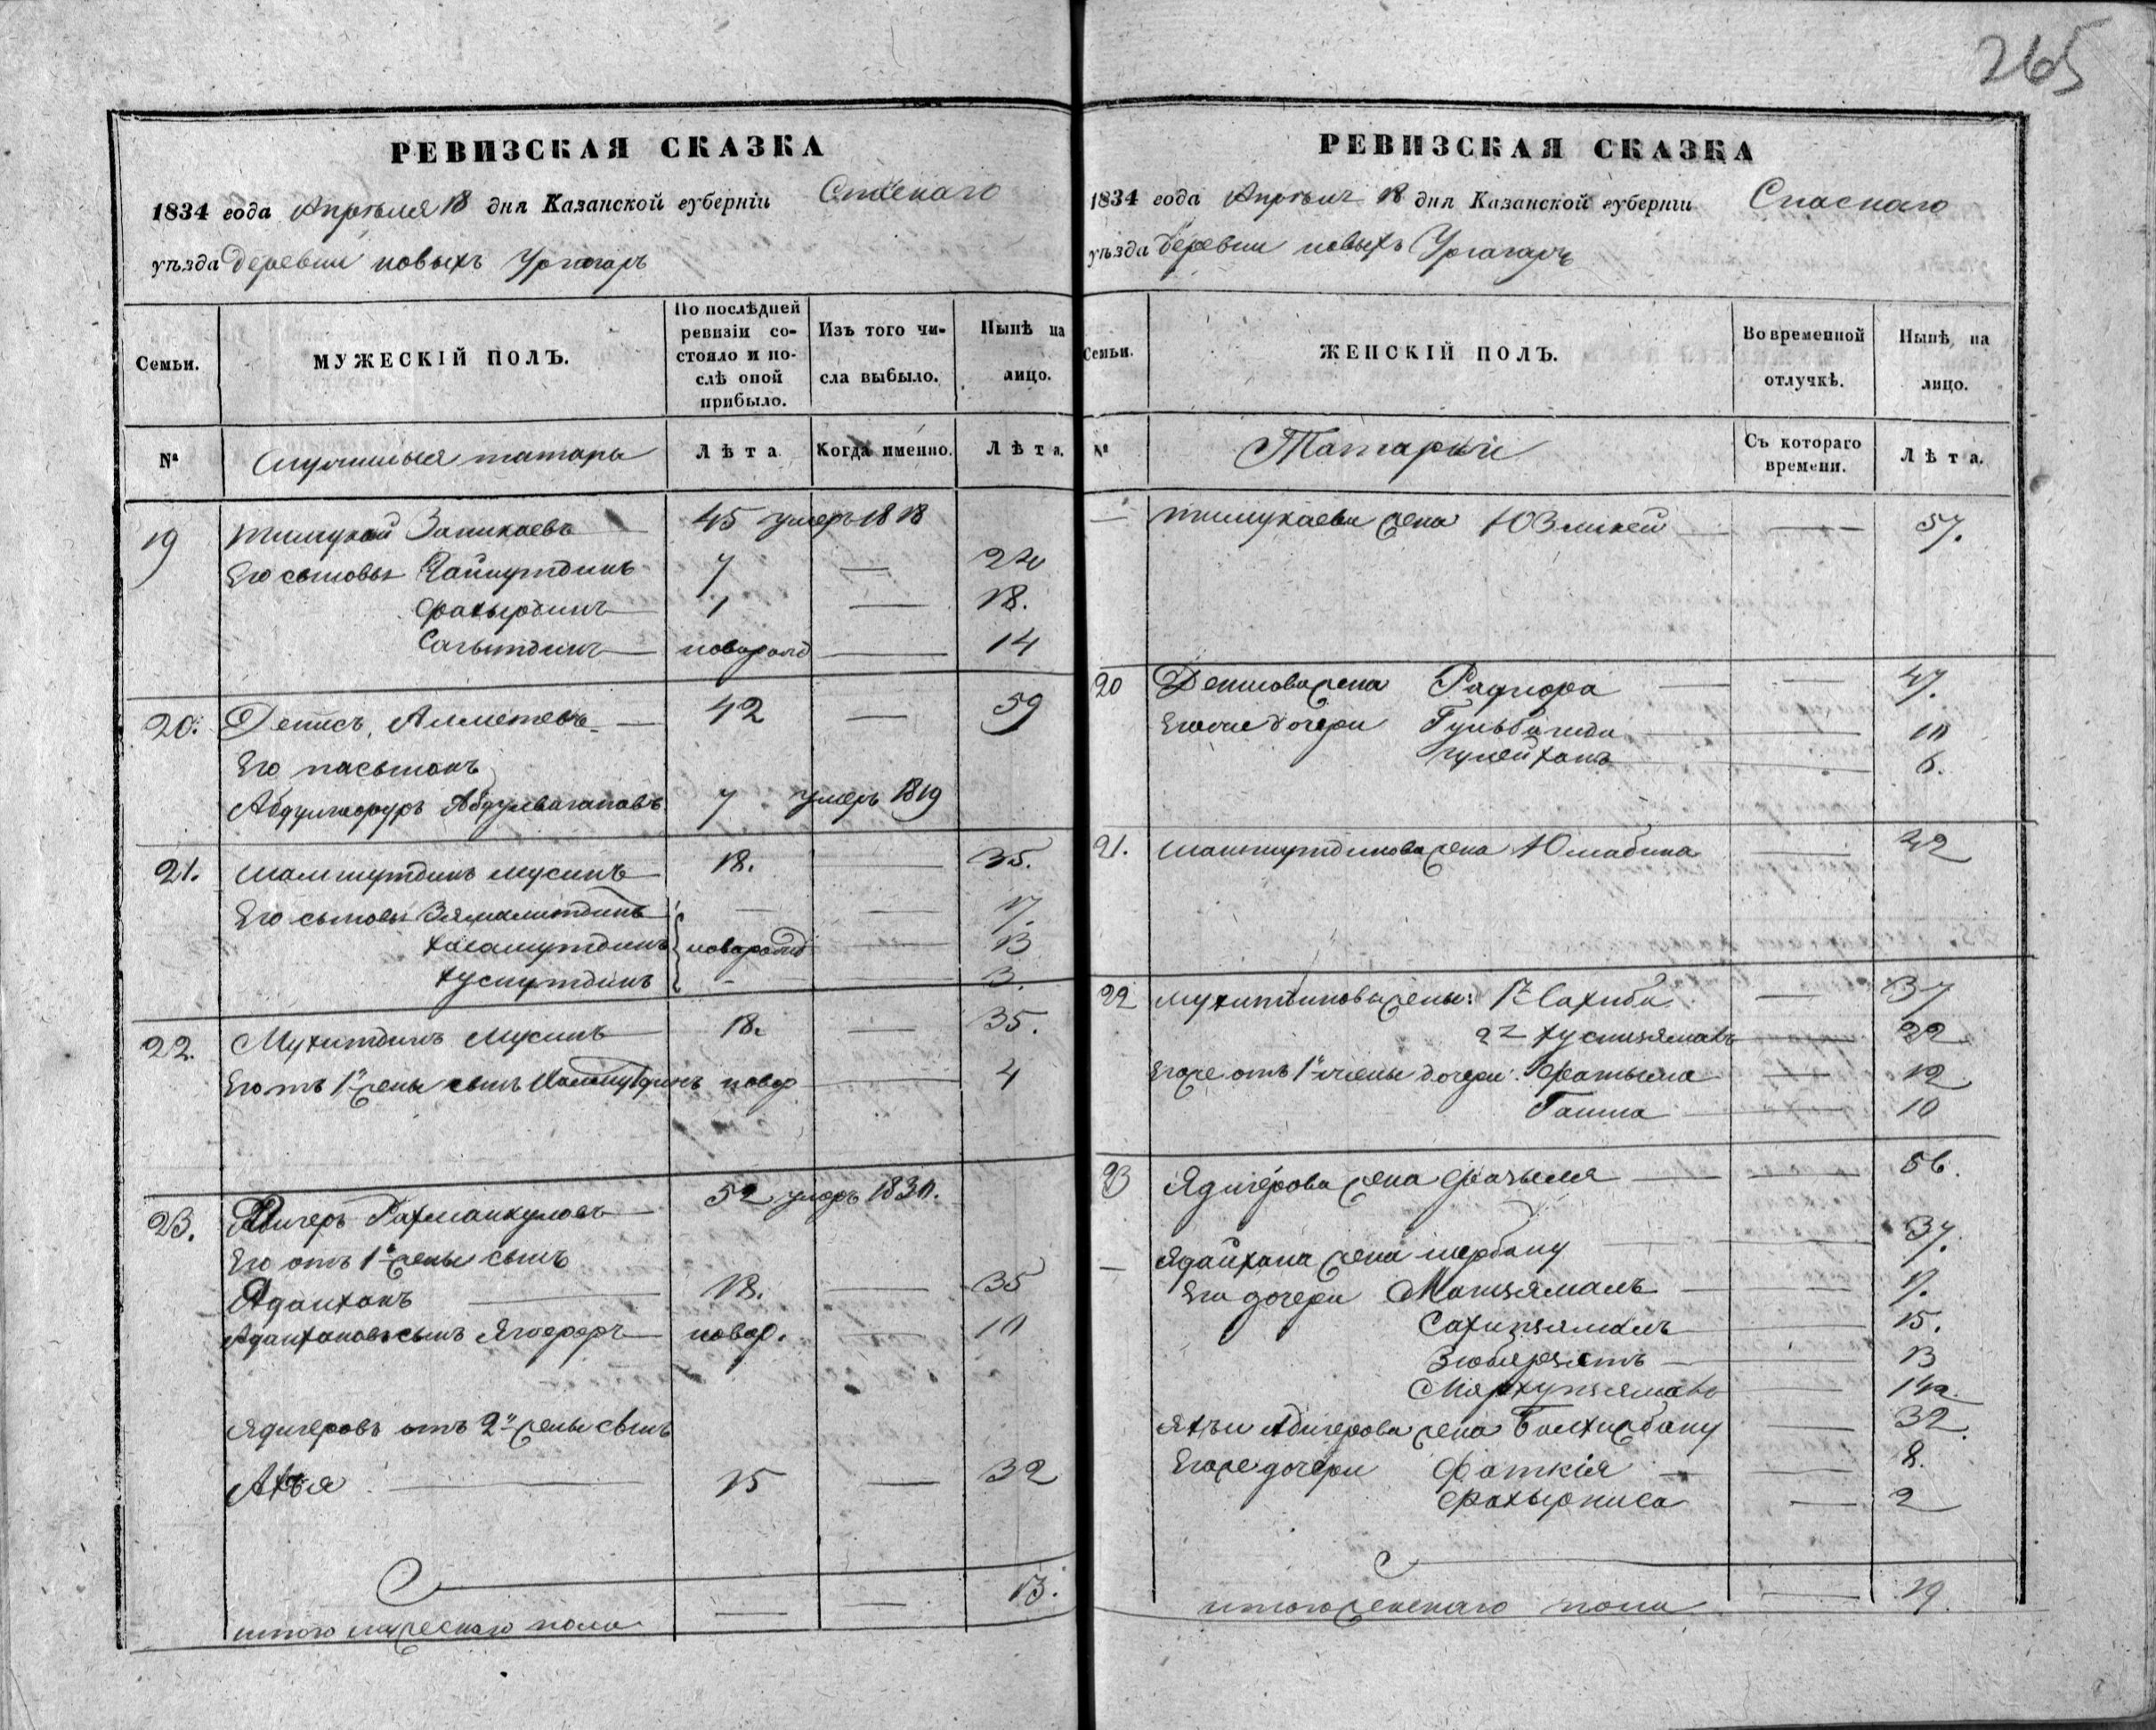 265
РЕВИЗСКАЯ СКАЗКА
1834 года Апрѣля 18 дня Казанской губерніи Спаскаго
уѣзда деревни новыхъ Ургагаръ
Семьи. МУЖЕСКІЙ ПОЛЪ. По послѣдней ревизіи состояло и послѣ оной прибыло. Изъ того числа выбыло. Нынѣ на лицо.
№ Служилыя татары Лѣта Когда именно. Лѣта.
19 Тимукай Заникаевъ 45 умеръ 1818
Его сыновья Займутдинъ 7 — 24
Фахырдинъ 1 — 18.
Сагытдинъ новорожд — 14
20. Денисъ Алметевъ 42 — 59
Его пасынокъ
Абдулгафуръ Абдулвагаповъ 7 умеръ 1819
21. Шамшутдинъ Мусинъ 18. — 35.
Его сыновья Зямалитдинъ — — 17.
Хисамутдинъ новорожд — 13
Хуснутдинъ - — 3.
22. Мухитдинъ Мусинъ 18. — 35.
Его отъ 1й жены сынъ новор — 4
23. Ядигеръ Рахманкуловъ 52 умеръ 1830.
Его отъ 1й жены сынъ
Адайханъ 18. — 35
Адайхановъ сынъ Ягоферъ новор. — 10
Ядигеровъ отъ 2й жены сынъ
Ахъя 15 — 32
итого мужескаго пола — — 13.
РЕВИЗСКАЯ СКАЗКА
1834 года Апрѣля 18 дня Казанской губерніи Спаскаго
уѣзда деревни новыхъ Ургагаръ
Семьи. ЖЕНСКІЙ ПОЛЪ. Во временной отлучкѣ. Нынѣ на лицо.
№ Татарки Съ котораго времени. Лѣта.
— Тимукаева жена Юзликей — 57.
20 Денисова жена Радифа — 47.
Егоже дочери Гульбагида 10
Гулейханъ 6.
21. Шамшутдинова жена Юмабика — 42
22 Мухитдинова жены: 1я Сахиба — 37
2я Хуснизямалъ 22
Егоже отъ 1й жены дочери: Фатыма — 12
Гаиша — 10
23 Ядигерова жена Фазыля — 56.
— Адайхана жена Шарбану — 37.
Его дочери Магизямалъ — 17.
Сахипзямалъ — 15.
Зюбярзятъ — 13
Мярхупзямалъ — 1½.
Яхъи Адигерова жена Бахтырбану — 32.
Егоже дочери Фаткія — 8.
Фахырниса — 2
итого женскаго пола — 19.